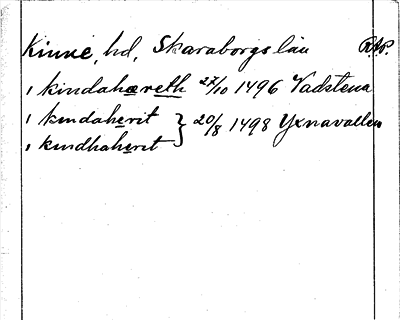 Kinne, hd, Skaraborgs län RAP.
i kindahæreth 27/10 1496 Vadstena
i kindaherit } 20/8 1498 Yxnavallen
i kindhaherit